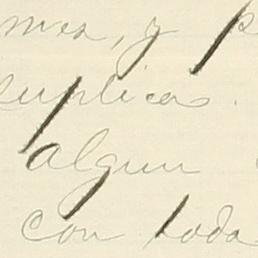 mes, y
suplicas.
algun
con toda